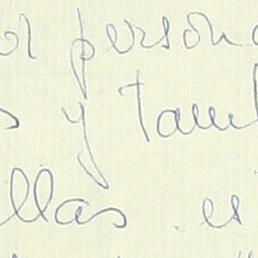 or persona
s y tamb
llas es